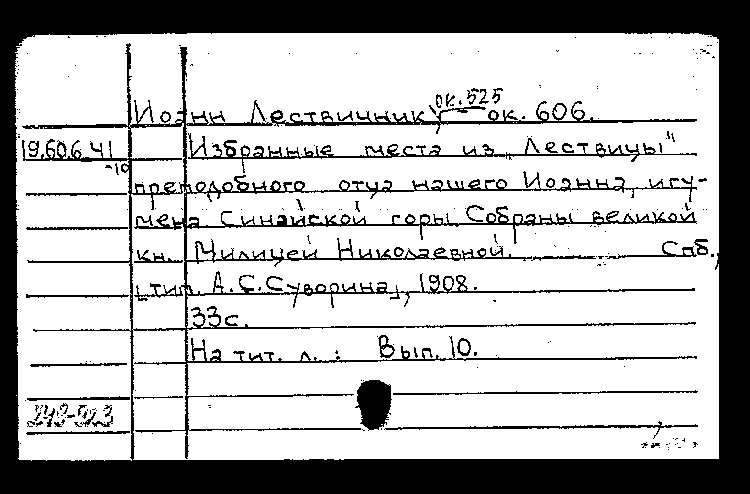 Иоанн Лествичник, ок. 525 – ок. 606.
19.60.6.41 Избранные места из „Лествицы"
-10
преподобного отца нашего Иоанна, игу-
мена Синайской горы. Собраны великой
кн. Милицей Николаевной. Спб.,
[тип. А.С.Суворина], 1908.
33с.
На тит. л.: Вып. 10.